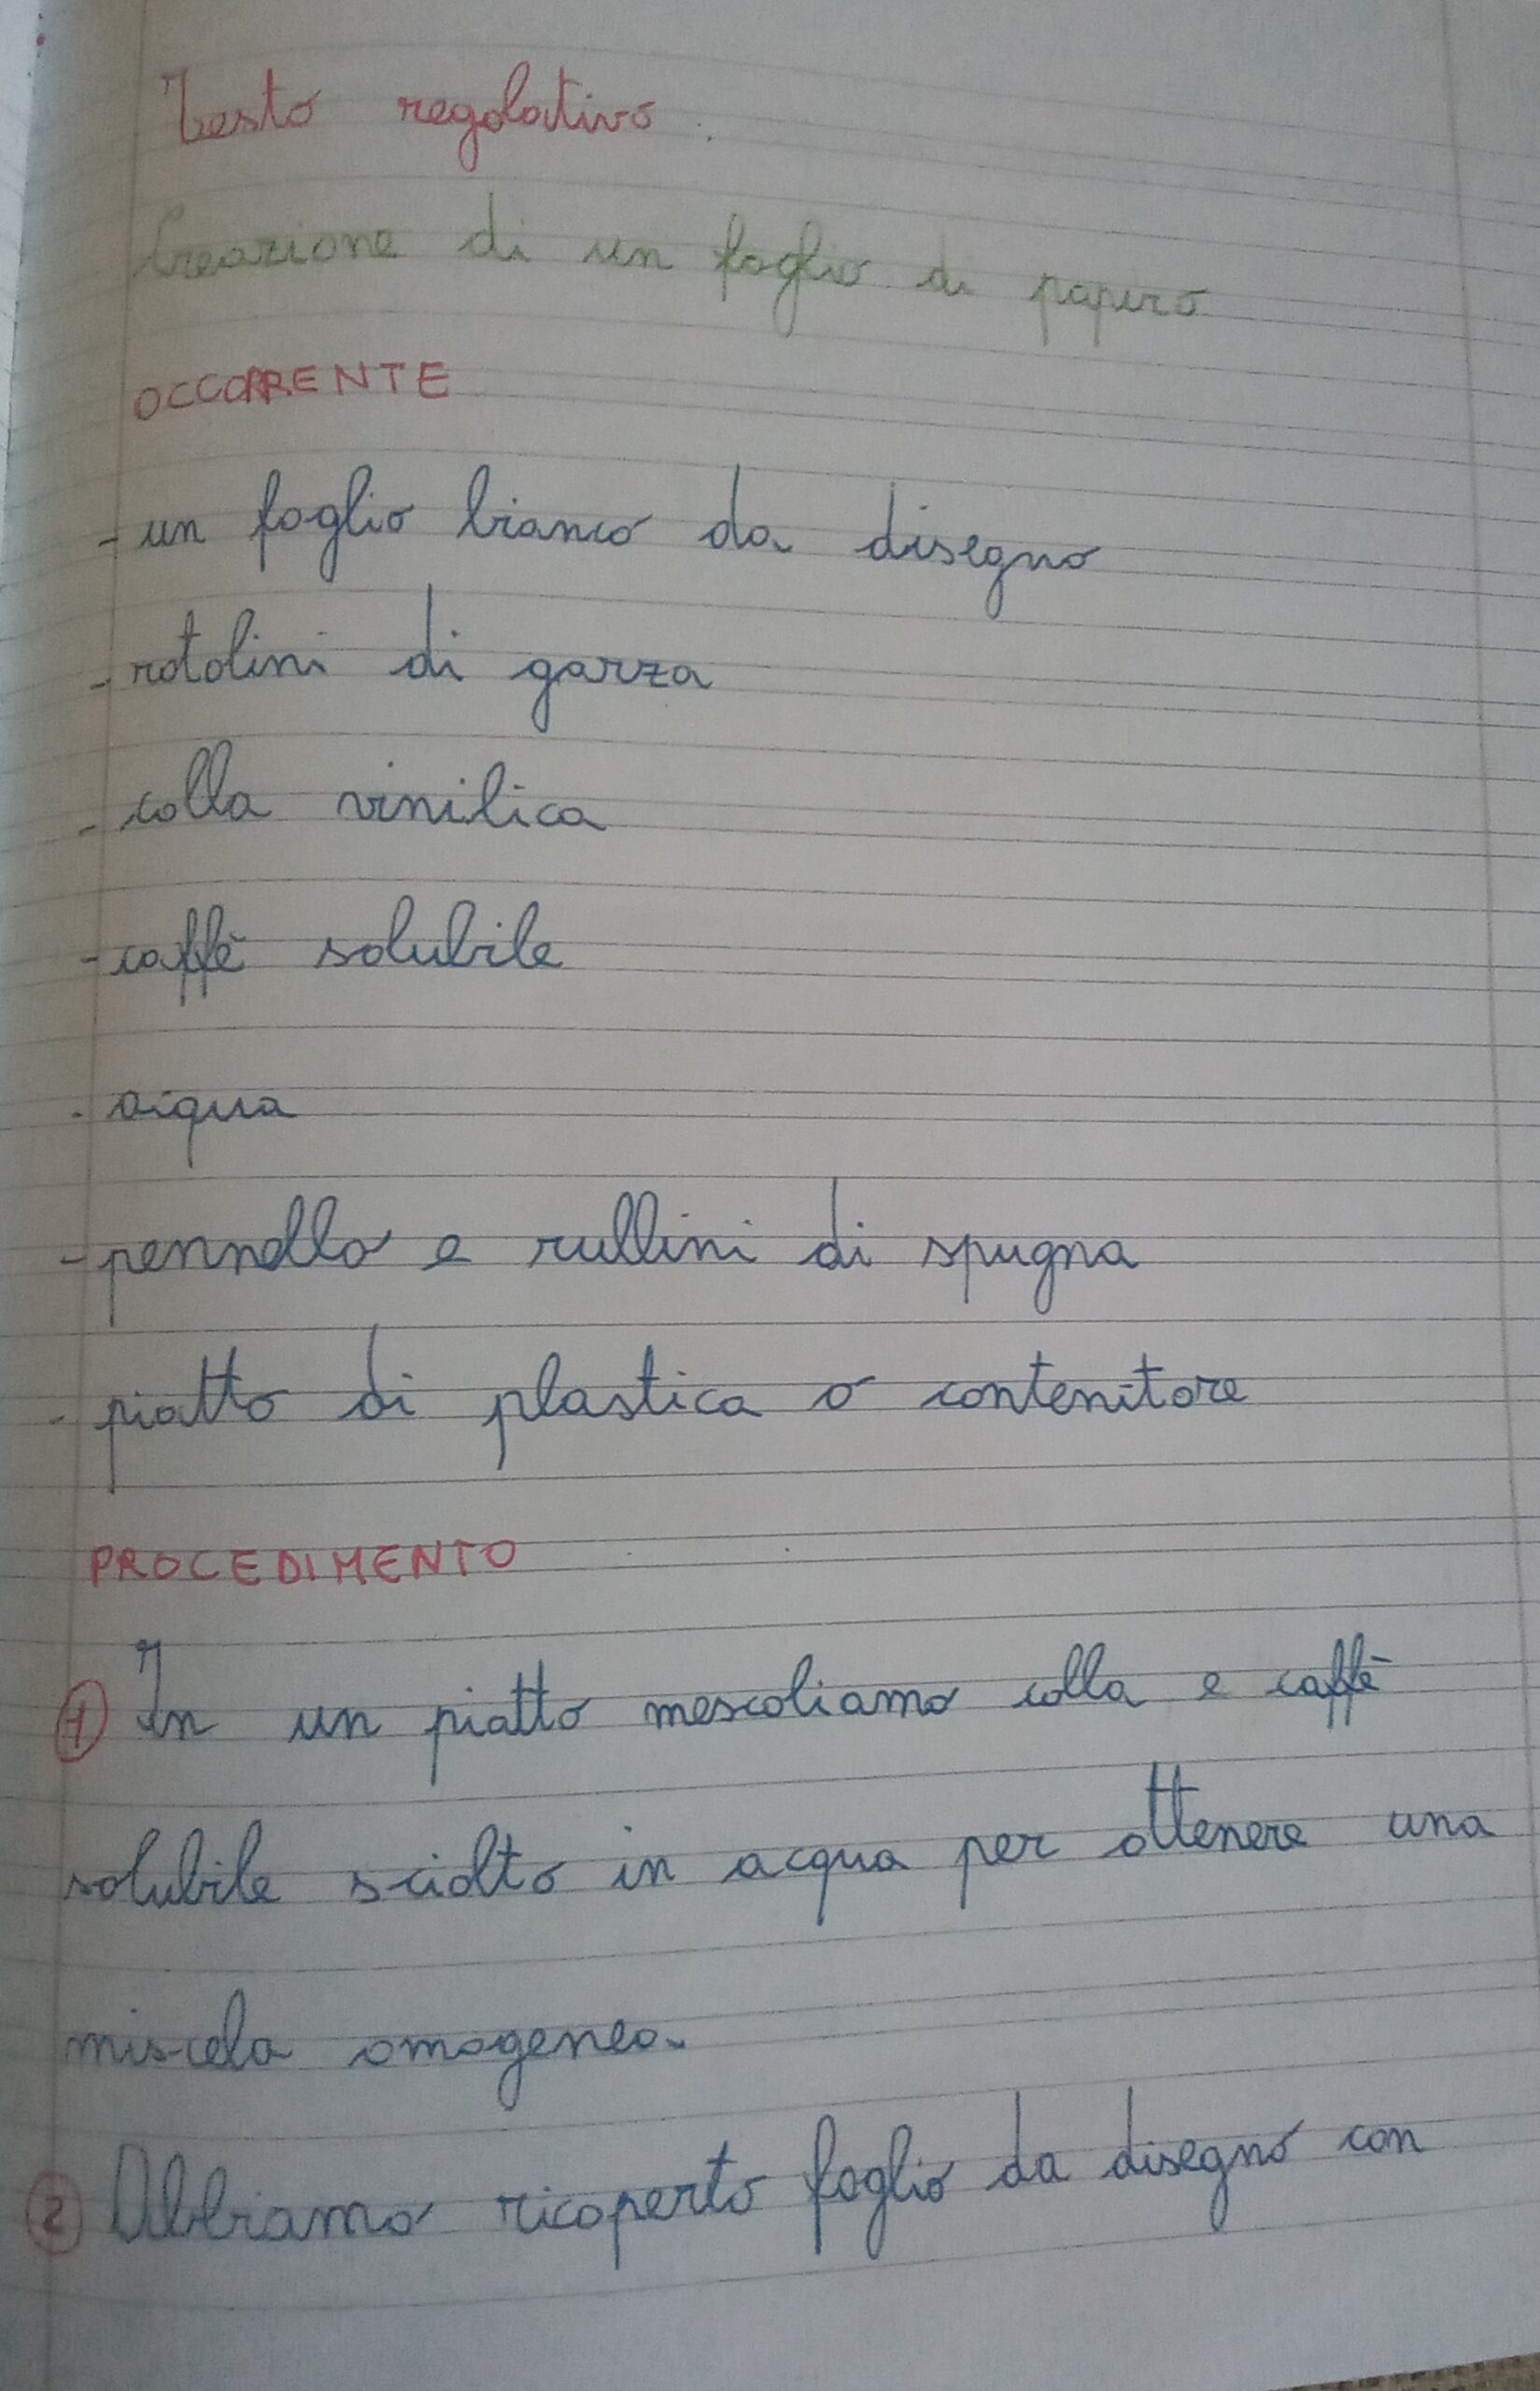 Testo regolativo.
Creazione di un foglio di papiro
OCCORRENTE
- un foglio bianco da disegno
- rotolini di garza
- colla vinilica
- caffè solubile
- acqua
- pennello e rullini di spugna
- piatto di plastica o contenitore
PROCEDIMENTO
1 In un piatto mescoliamo colla e caffè
solubile sciolto in acqua per ottenere una
miscela omogenea.
2 Abbiamo ricoperto foglio da disegno con